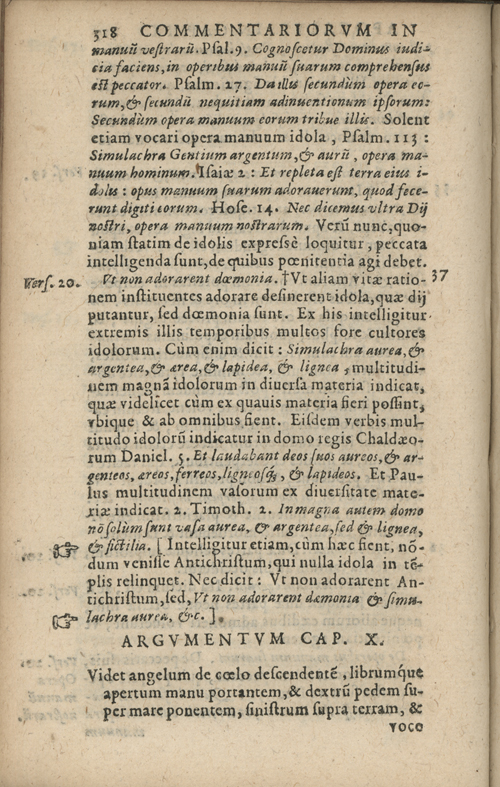 318 COMMENTARIORVM IN
manuū veſtrarū. Pſal. 9. Cognoſcetur Dominus iudi-
cia faciens, in operibus manuū ſuarum comprehenſus
eſt peccator. Pſalm. 27. Da illis ſecundùm opera eo-
rum, & ſecundū nequitiam adinuentionum ipſorum:
Secundùm opera manuum eorum tribue illis. Solent
etiam vocari opera manuum idola, Pſalm. 113:
Simulachra Gentium argentum, & aurū, opera ma-
nuum hominum. Iſaiæ 2: Et repleta eſt terra eius i-
dolis: opus manuum ſuarum adorauerunt, quod fece-
runt digiti eorum. Hoſe. 14. Nec dicemus vltra Dij
noſtri, opera manuum noſtrarum. Verū nunc, quo-
niam ſtatim de idolis expreſsè loquitur, peccata
intelligenda ſunt, de quibus pœnitentia agi debet.
Verſ. 20. Vt non adorarent dæmonia. †Vt aliam vitæ ratio- 37
nem inſtituentes adorare deſinerent idola, quæ dij
putantur, ſed dœmonia ſunt. Ex his intelligitur
extremis illis temporibus multos fore cultores
idolorum. Cùm enim dicit: Simulachra aurea, &
argentea, & ærea, & lapidea, & lignea, multitudi-
nem magnā idolorum in diuerſa materia indicat,
quæ videlicet cùm ex quauis materia fieri poſſint,
vbique & ab omnibus fient. Eiſdem verbis mul-
titudo idolorū indicatur in domo regis Chaldæo-
rum Daniel. 5. Et laudabant deos ſuos aureos, & ar-
genteos, æreos, ferreos, ligneoſq́;, & lapideos. Et Pau-
lus multitudinem vaſorum ex diuerſitate mate-
riæ indicat. 2. Timoth. 2. In magna autem domo
nō ſolùm ſunt vaſa aurea, & argentea, ſed & lignea,
☞ & fictilia. [ Intelligitur etiam, cùm hæc fient, nō-
dum veniſſe Antichriſtum, qui nulla idola in tē-
plis relinquet. Nec dicit: Vt non adorarent An-
tichriſtum, ſed, Vt non adorarent dæmonia & ſimu-
☞ lachra aurea, &c. ].
ARGVMENTVM CAP. X.
Videt angelum de cœlo deſcendentē, librumq́ue
apertum manu portantem, & dextrū pedem ſu-
per mare ponentem, ſiniſtrum ſupra terram, &
voce